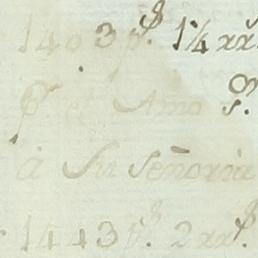 1403 p.s 1¼ xx.
p.r el Amo S.or
a Su Señoria
1443 p.s 2 xx.s